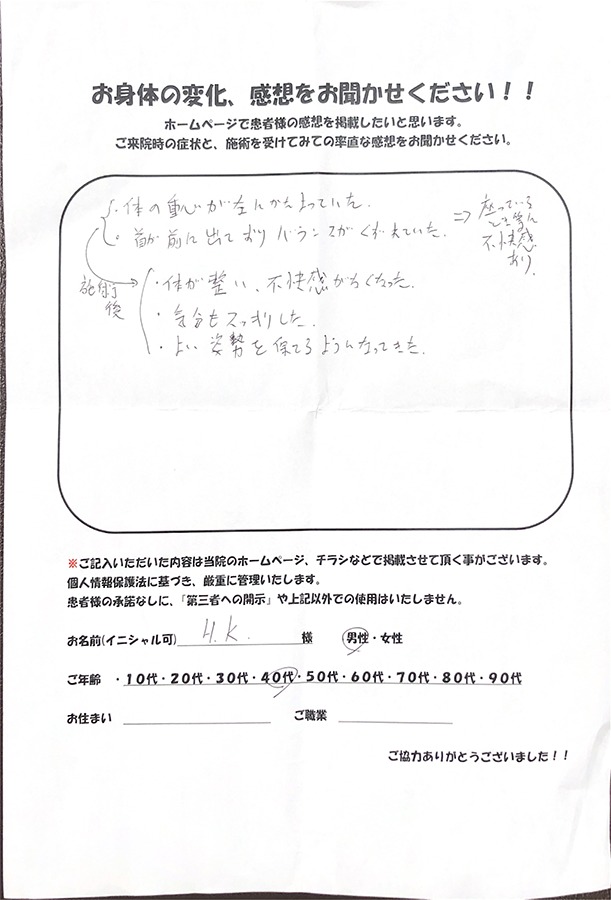 お身体の変化、感想をお聞かせください！！
ホームページで患者様の感想を掲載したいと思います。
ご来院時の症状と、施術を受けてみての率直な感想をお聞かせください。
・体の重心が左にかたよっていた。
・首が前に出ておりバランスがくずれていた。
⇒ 座っている
とき等に
不快感
あり。
施術
後
・体が整い、不快感がなくなった。
・気分もスッキリした。
・よい姿勢を保てるようになってきた。
※ご記入いただいた内容は当院のホームページ、チラシなどで掲載させて頂く事がございます。
個人情報保護法に基づき、厳重に管理いたします。
患者様の承諾なしに、「第三者への開示」や上記以外での使用はいたしません。
お名前(イニシャル可) H.K. 様 男性・女性
ご年齢 ・10代・20代・30代・40代・50代・60代・70代・80代・90代
お住まい ご職業
ご協力ありがとうございました！！